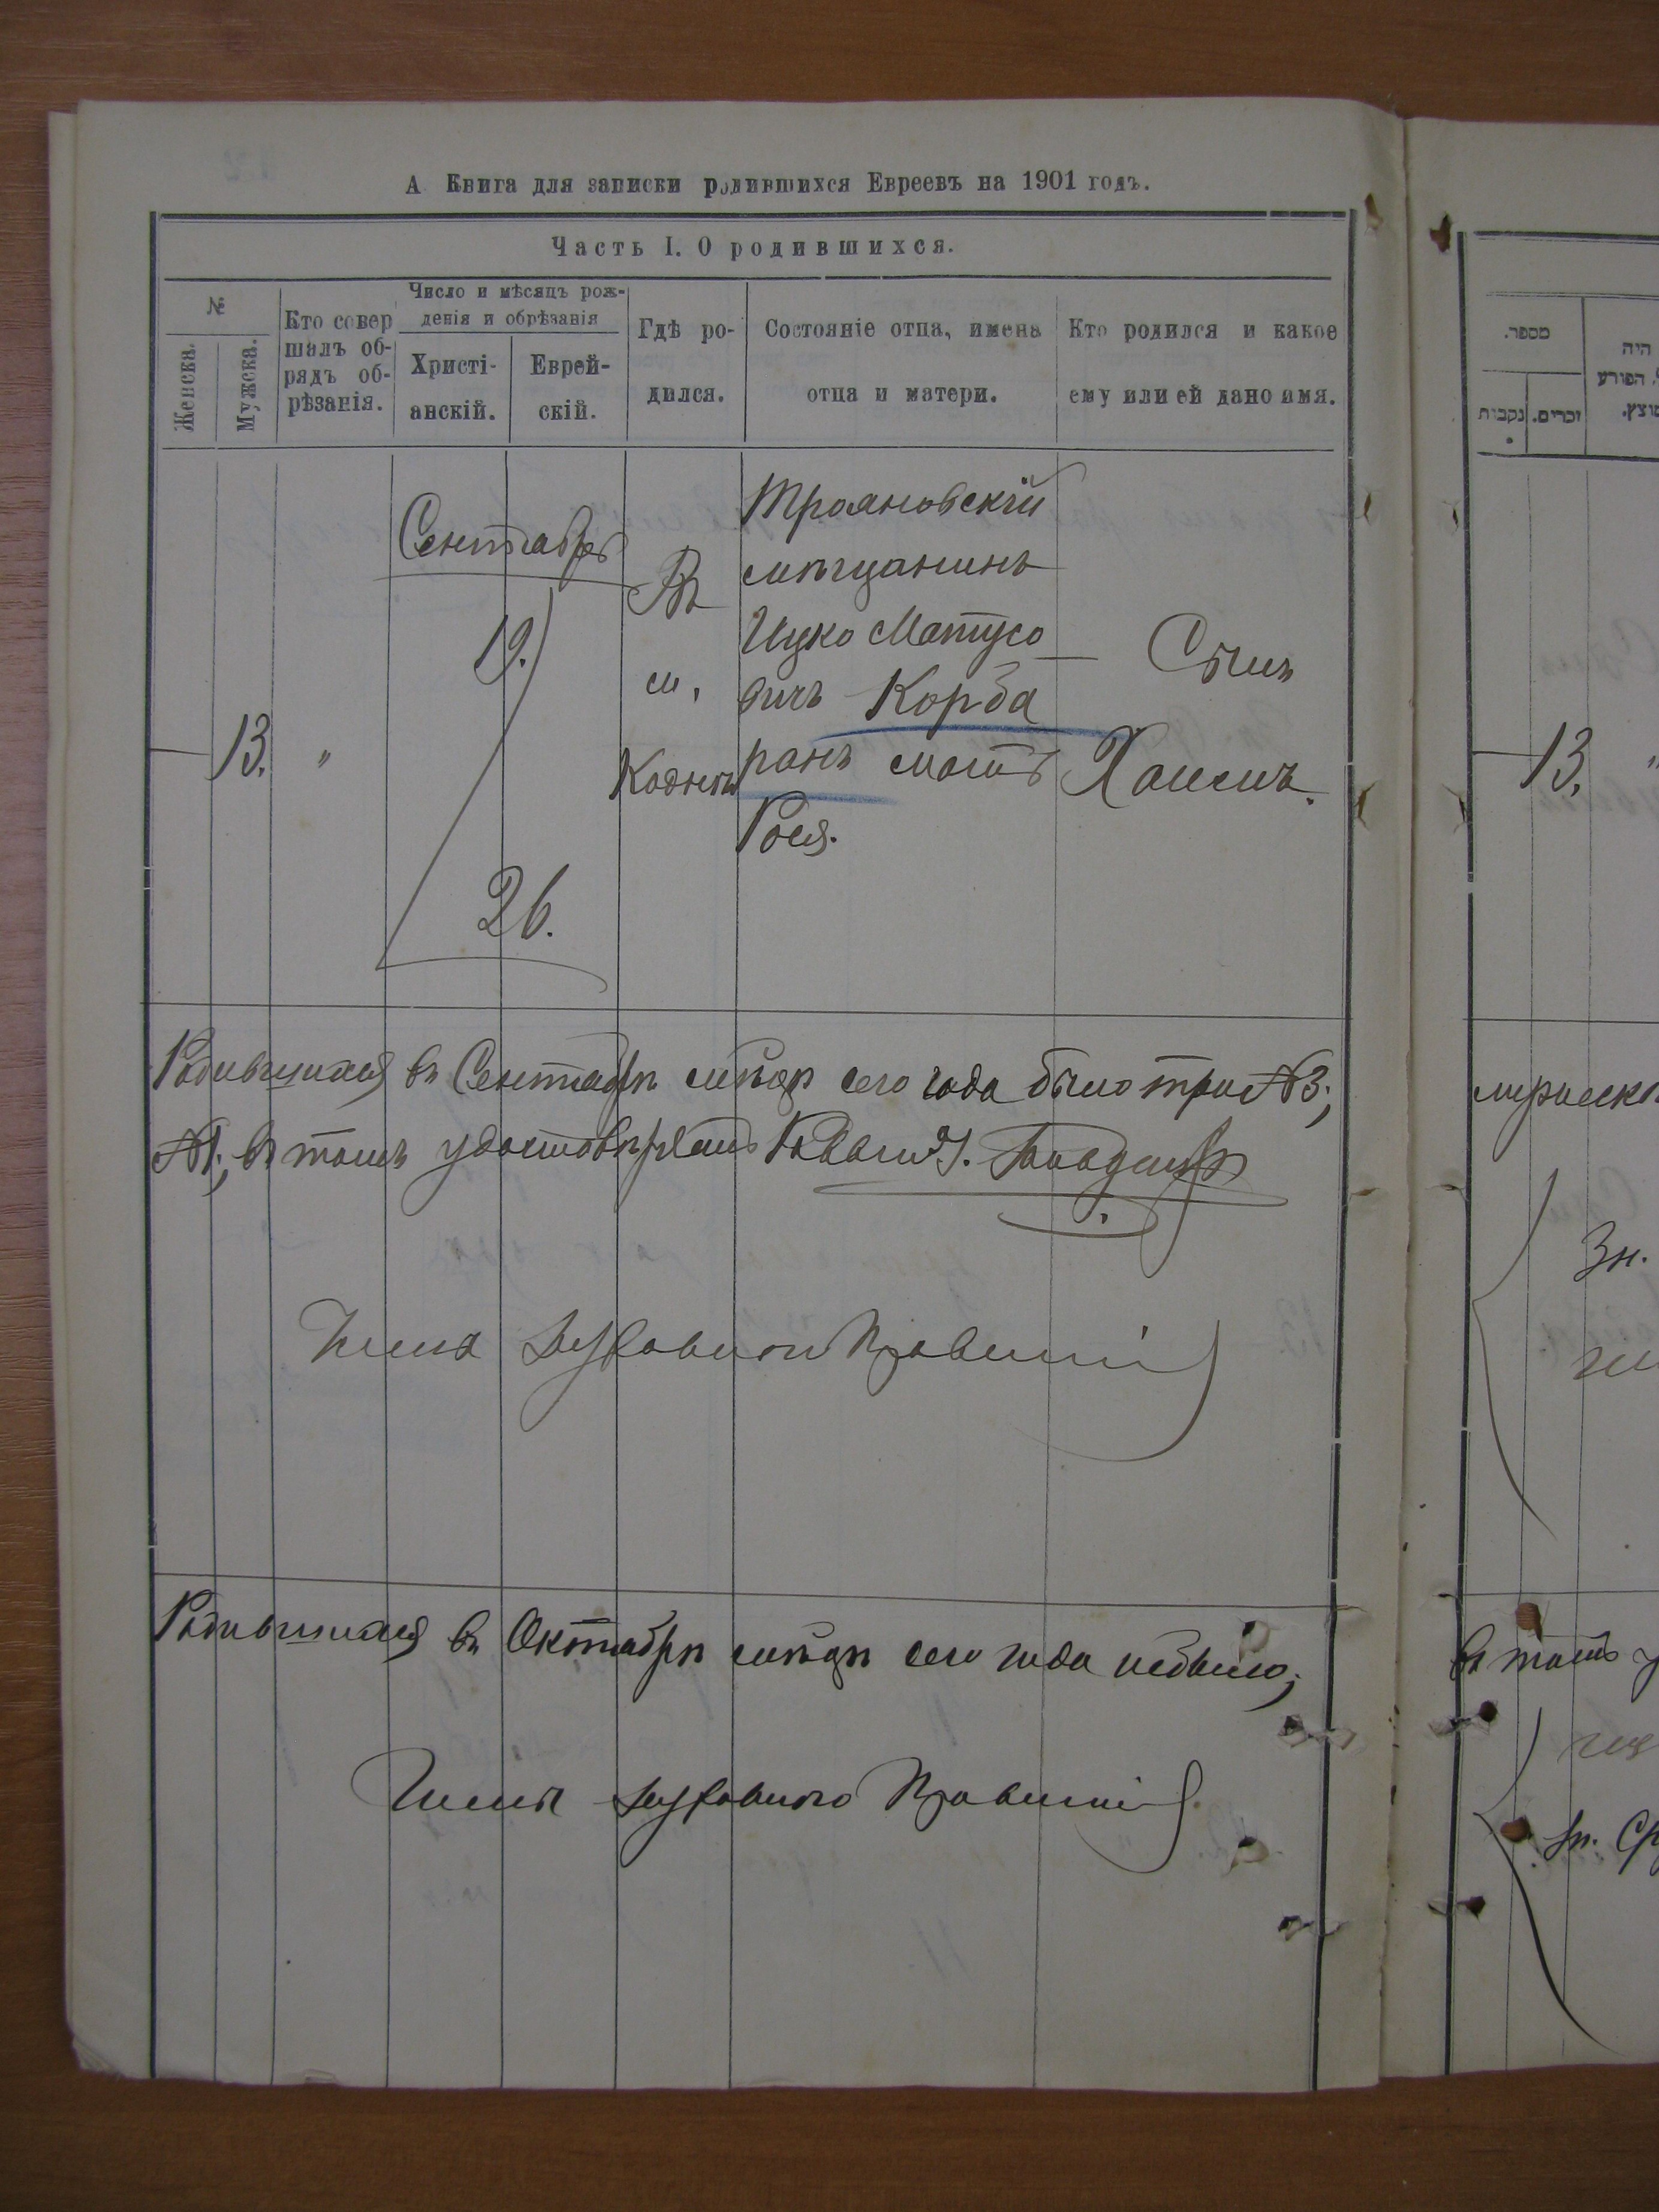 А Книга для записки родившихся Евреевъ на 1901 годъ.
Часть I. О родившихся.
№
Женска.
Мужска.
Кто совер
шалъ об-
рядъ об-
рѣзанія.
Число и мѣсяцъ рож-
денія и обрѣзанія
Христі-
анскій.
Еврей-
скій.
Гдѣ ро-
дился.
Состояніе отца, имена
отца и матери.
Кто родился и какое
ему или ей дано имя.
13.
"
Сентабрь
19.
26.
Въ
м.
Кодне
Трояновскій
мѣщанинъ
Ицко Матусо
вичъ Корба
ранъ мать
Рося.
Сынъ
Хаимъ.
Родившихся въ Сентабрѣ мѣсяцѣ сего года было три №3;
№1; въ томъ удостовѣряемъ Раввинъ
Члена Духовного Правленія
Родившихся въ Октабрѣ мѣсяцѣ сего года небыло;
Члены Духовного Правленія
מספר.
נקבות
זכרים.
היה
הפורע
13.
"
мужеска
Зн.
въ томъ у